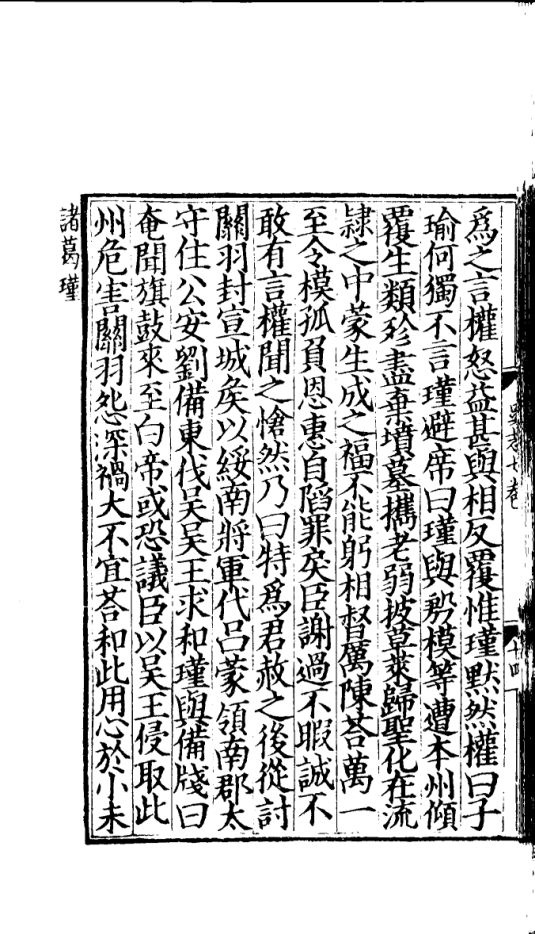 爲之言權怒益甚與相反覆惟瑾默然權曰子
瑜何獨不言瑾避席曰瑾與殷模等遭本州傾
覆生類殄盡棄墳墓攜老弱披草萊歸聖化在流
隸之中蒙生成之福不能躬相督厲陳荅萬一
至令模孤負恩惠自陷罪戾臣謝過不暇誠不
敢有言權聞之愴然乃曰特爲君赦之後從討
關羽封宣城矦以綏南將軍代吕蒙領南郡太
守住公安劉備東伐吴吴王求和瑾與備牋曰
奄聞旗鼓來至白帝或恐議臣以吴王侵取此
州危害關羽怨深禍大不宜荅和此用心於小未
諸葛瑾
十四